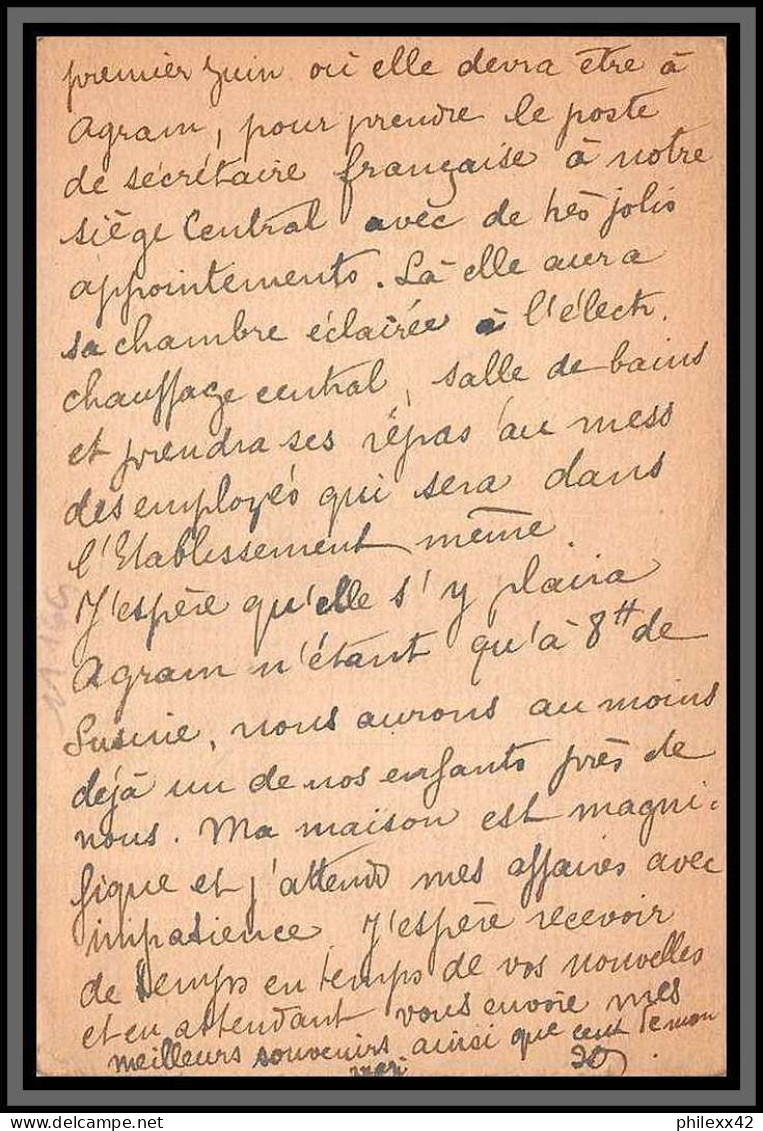 premier Juin où elle devra être à
Agram, pour prendre le poste
de sécrétaire française à notre
siège Central avec de très jolis
appointements. Là elle aura
sa chambre éclairée à l'électr.
chauffage central, salle de bains
et prendra ses répas au mess
des employés qui sera dans
l'Etablissement même.
J'espère qu'elle s'y plaira
Agram n'étant qu'à 8 H de
Susine, nous aurons au moins
déjà un de nos enfants près de
nous. Ma maison est magni-
fique et j'attends mes affaires avec
impasience. J'espère recevoir
de temps en temps de vos nouvelles
et en attendant vous envoie mes
meilleurs souvenirs ainsi que ceux de mon
mari
21166
philexx42